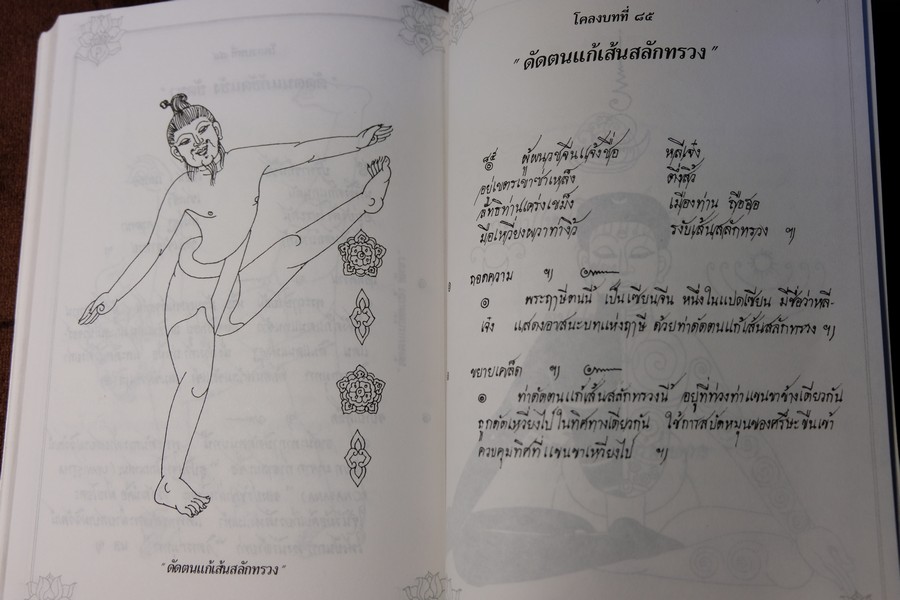 "ดัดตนแก้เส้นสลักทรวง"
โคลงบทที่ ๘๕
"ดัดตนแก้เส้นสลักทรวง"
๘๕ ผู้ผนวชจีนแจ้งชื่อ หลีเจ๋ง
อยู่เขตรเขาซาเหล็ง ตึ่งสิ้ว
ลัทธิท่านเคร่งเขม็ง เมืองท่าน ถือฮอ
มือเหวี่ยงผวาท่างิ้ว รงับเส้นสลักทรวง ฯ
ถอดความ ฯ
๑ พระฤๅษีตนนี้ เป็นเซียนจีน หนึ่งในแปดเซียน มีชื่อว่าหลี-
เจ๋ง แสดงอาสนะบทแห่งฤๅษี ด้วยท่าดัดตนแก้เส้นสลักทรวง ฯ
ขยายเคล็ด ฯ
๑ ท่าดัดตนแก้เส้นสลักทรวงนี้ อยู่ที่ท่วงท่าแขนขาข้างเดียวกัน
ถูกดัดเหวี่ยงไปในทิศทางเดียวกัน ใช้การสบัดหมุนของศรีษะขืนเข้า
ควบคุมทิศที่แขนขาเหวี่ยงไป ฯ